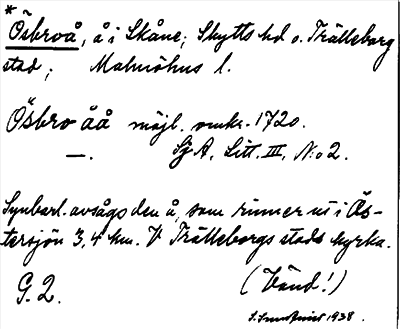 * Ösbroå, å i Skåne; Skytts hd o. Trälleborg
stad; Malmöhus l.
Ösbro åå möjl. omkr. 1720.
—. Sj A. Litt. III, N:o 2.
Synbarl. avsågs den å, som rinner ut i Ös-
tersjön 3,4 km. V Trälleborgs stads kyrka.
G. 2. (Vänd!)
1938.